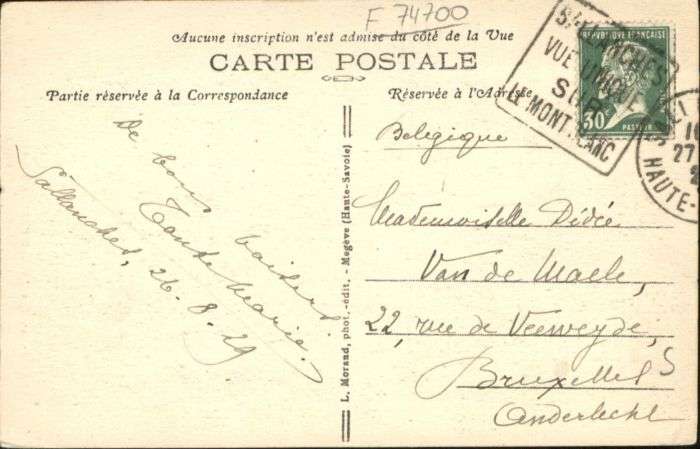 F 74700
Aucune inscription n'est admise du côté de la Vue
CARTE POSTALE
Partie réservée à la Correspondance
Réservée à l'Adresse
SALLANCHES
VUE UNIQUE
SUR
LE MONT BLANC
REPUBLIQUE FRANÇAISE
30
PASTEUR
27
HAUTE-
De bons baisers
Tante Marie.
Sallanches, 26.8.29
L. Morand, phot.-édit. - Megève (Haute-Savoie)
Belgique
Mademoiselle Dédée
Van de Maele,
22, rue de Veeweyde,
Bruxelles
Anderlecht